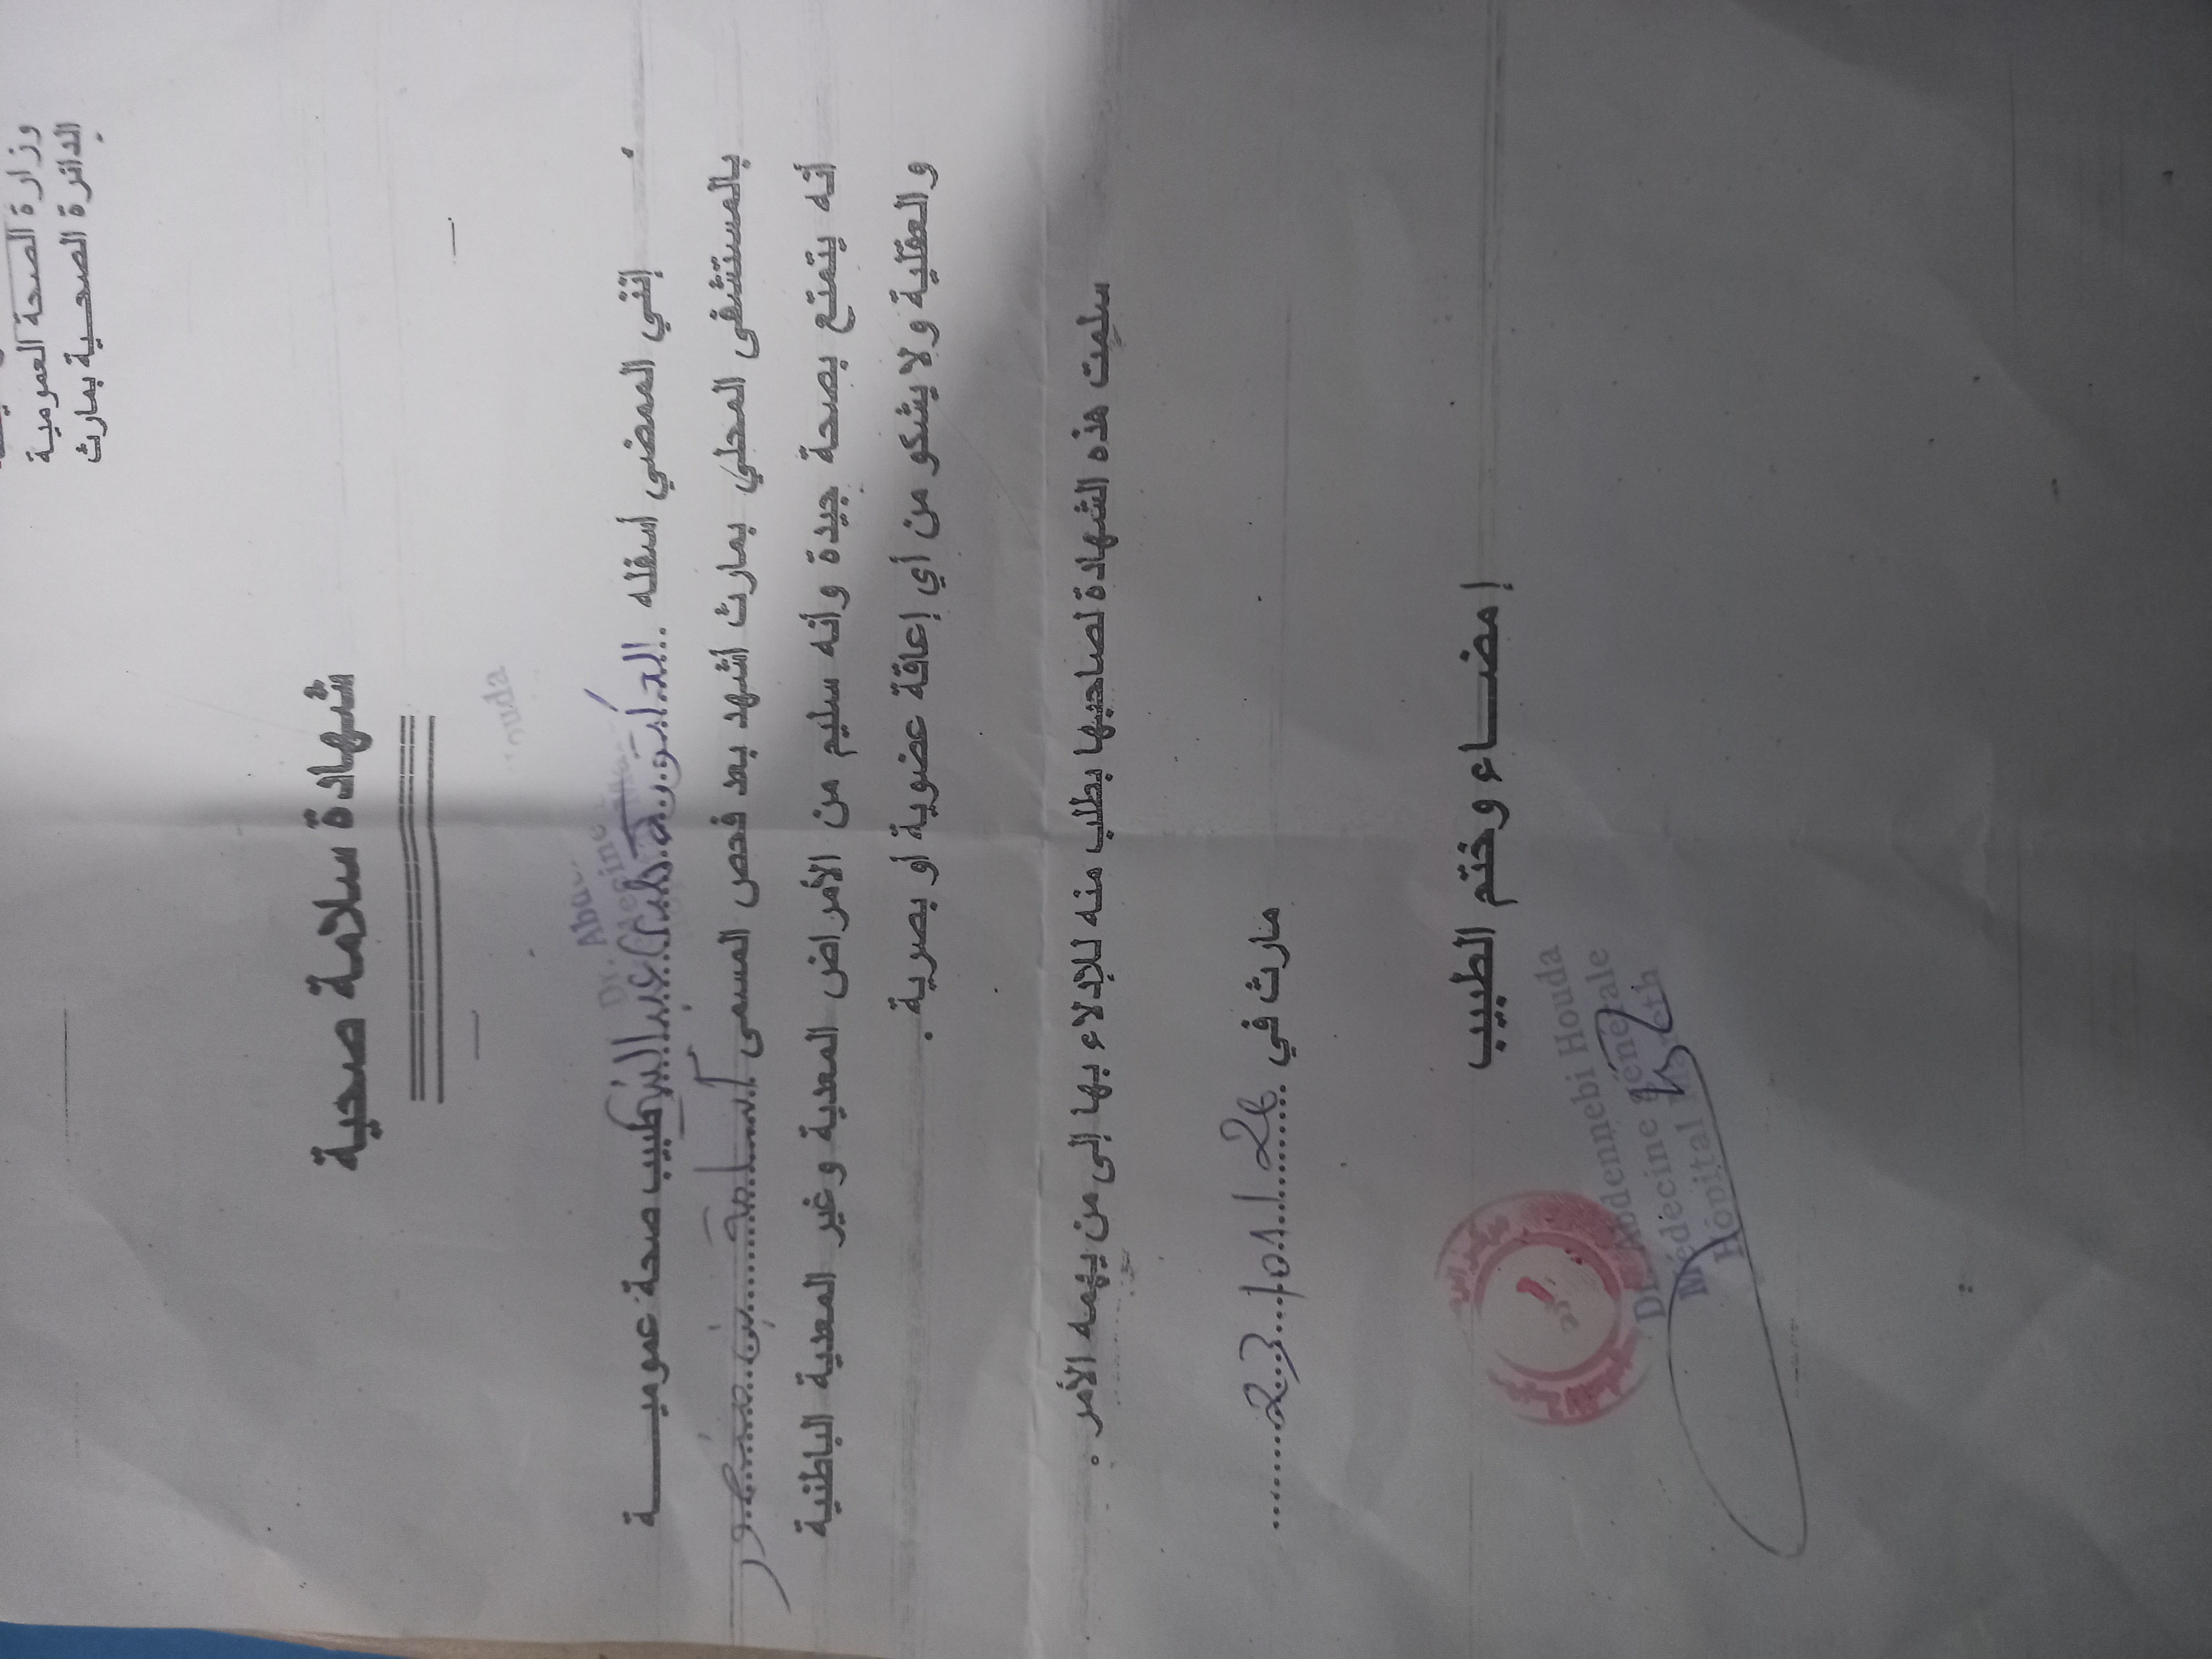 وزارة الصحة العمومية
الدائرة الصحية بمارث
شهادة سلامة صحية
إنني الممضي أسفله .الدكتورة هدى عبد النبي طبيب صحة عموميـــــة
بالمستشفى المحلي بمارث أشهد بعد فحص المسمى أسامة بن منصور
أنه يتمتع بصحة جيدة وأنه سليم من الأمراض المعدية وغير المعدية الباطنية
والعقلية ولا يشكو من أي إعاقة عضوية أو بصرية .
سلمت هذه الشهادة لصاحبها بطلب منه للإدلاء بها إلى من يهمه الأمر .
مارث في 23/01/26
إمضـــاء وختم الطبيب
Dr. Abdennebi Houda
Médecine Générale
Hôpital Mareth